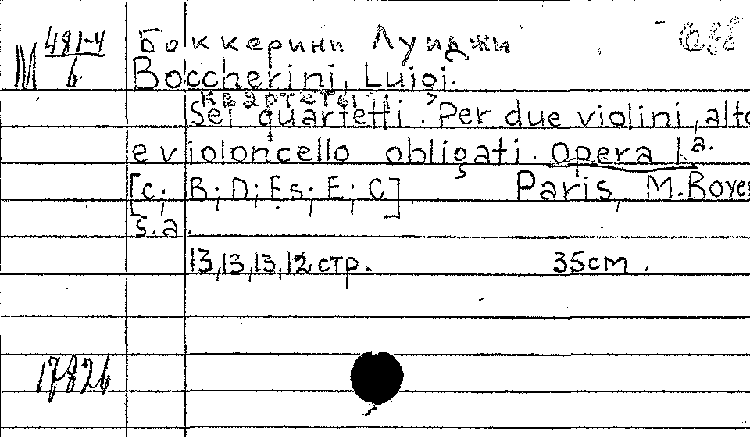 M 481-4/6
Боккерини Луиджи
Boccherini, Luigi.
Квартеты
Sei quartetti. Per due violini, alto
e violoncello obligati. Opera 1ª.
[c; B; D; Es; E; C] Paris, M. Boyer
s.a.
13,13,13,12 стр. 35см.
17826